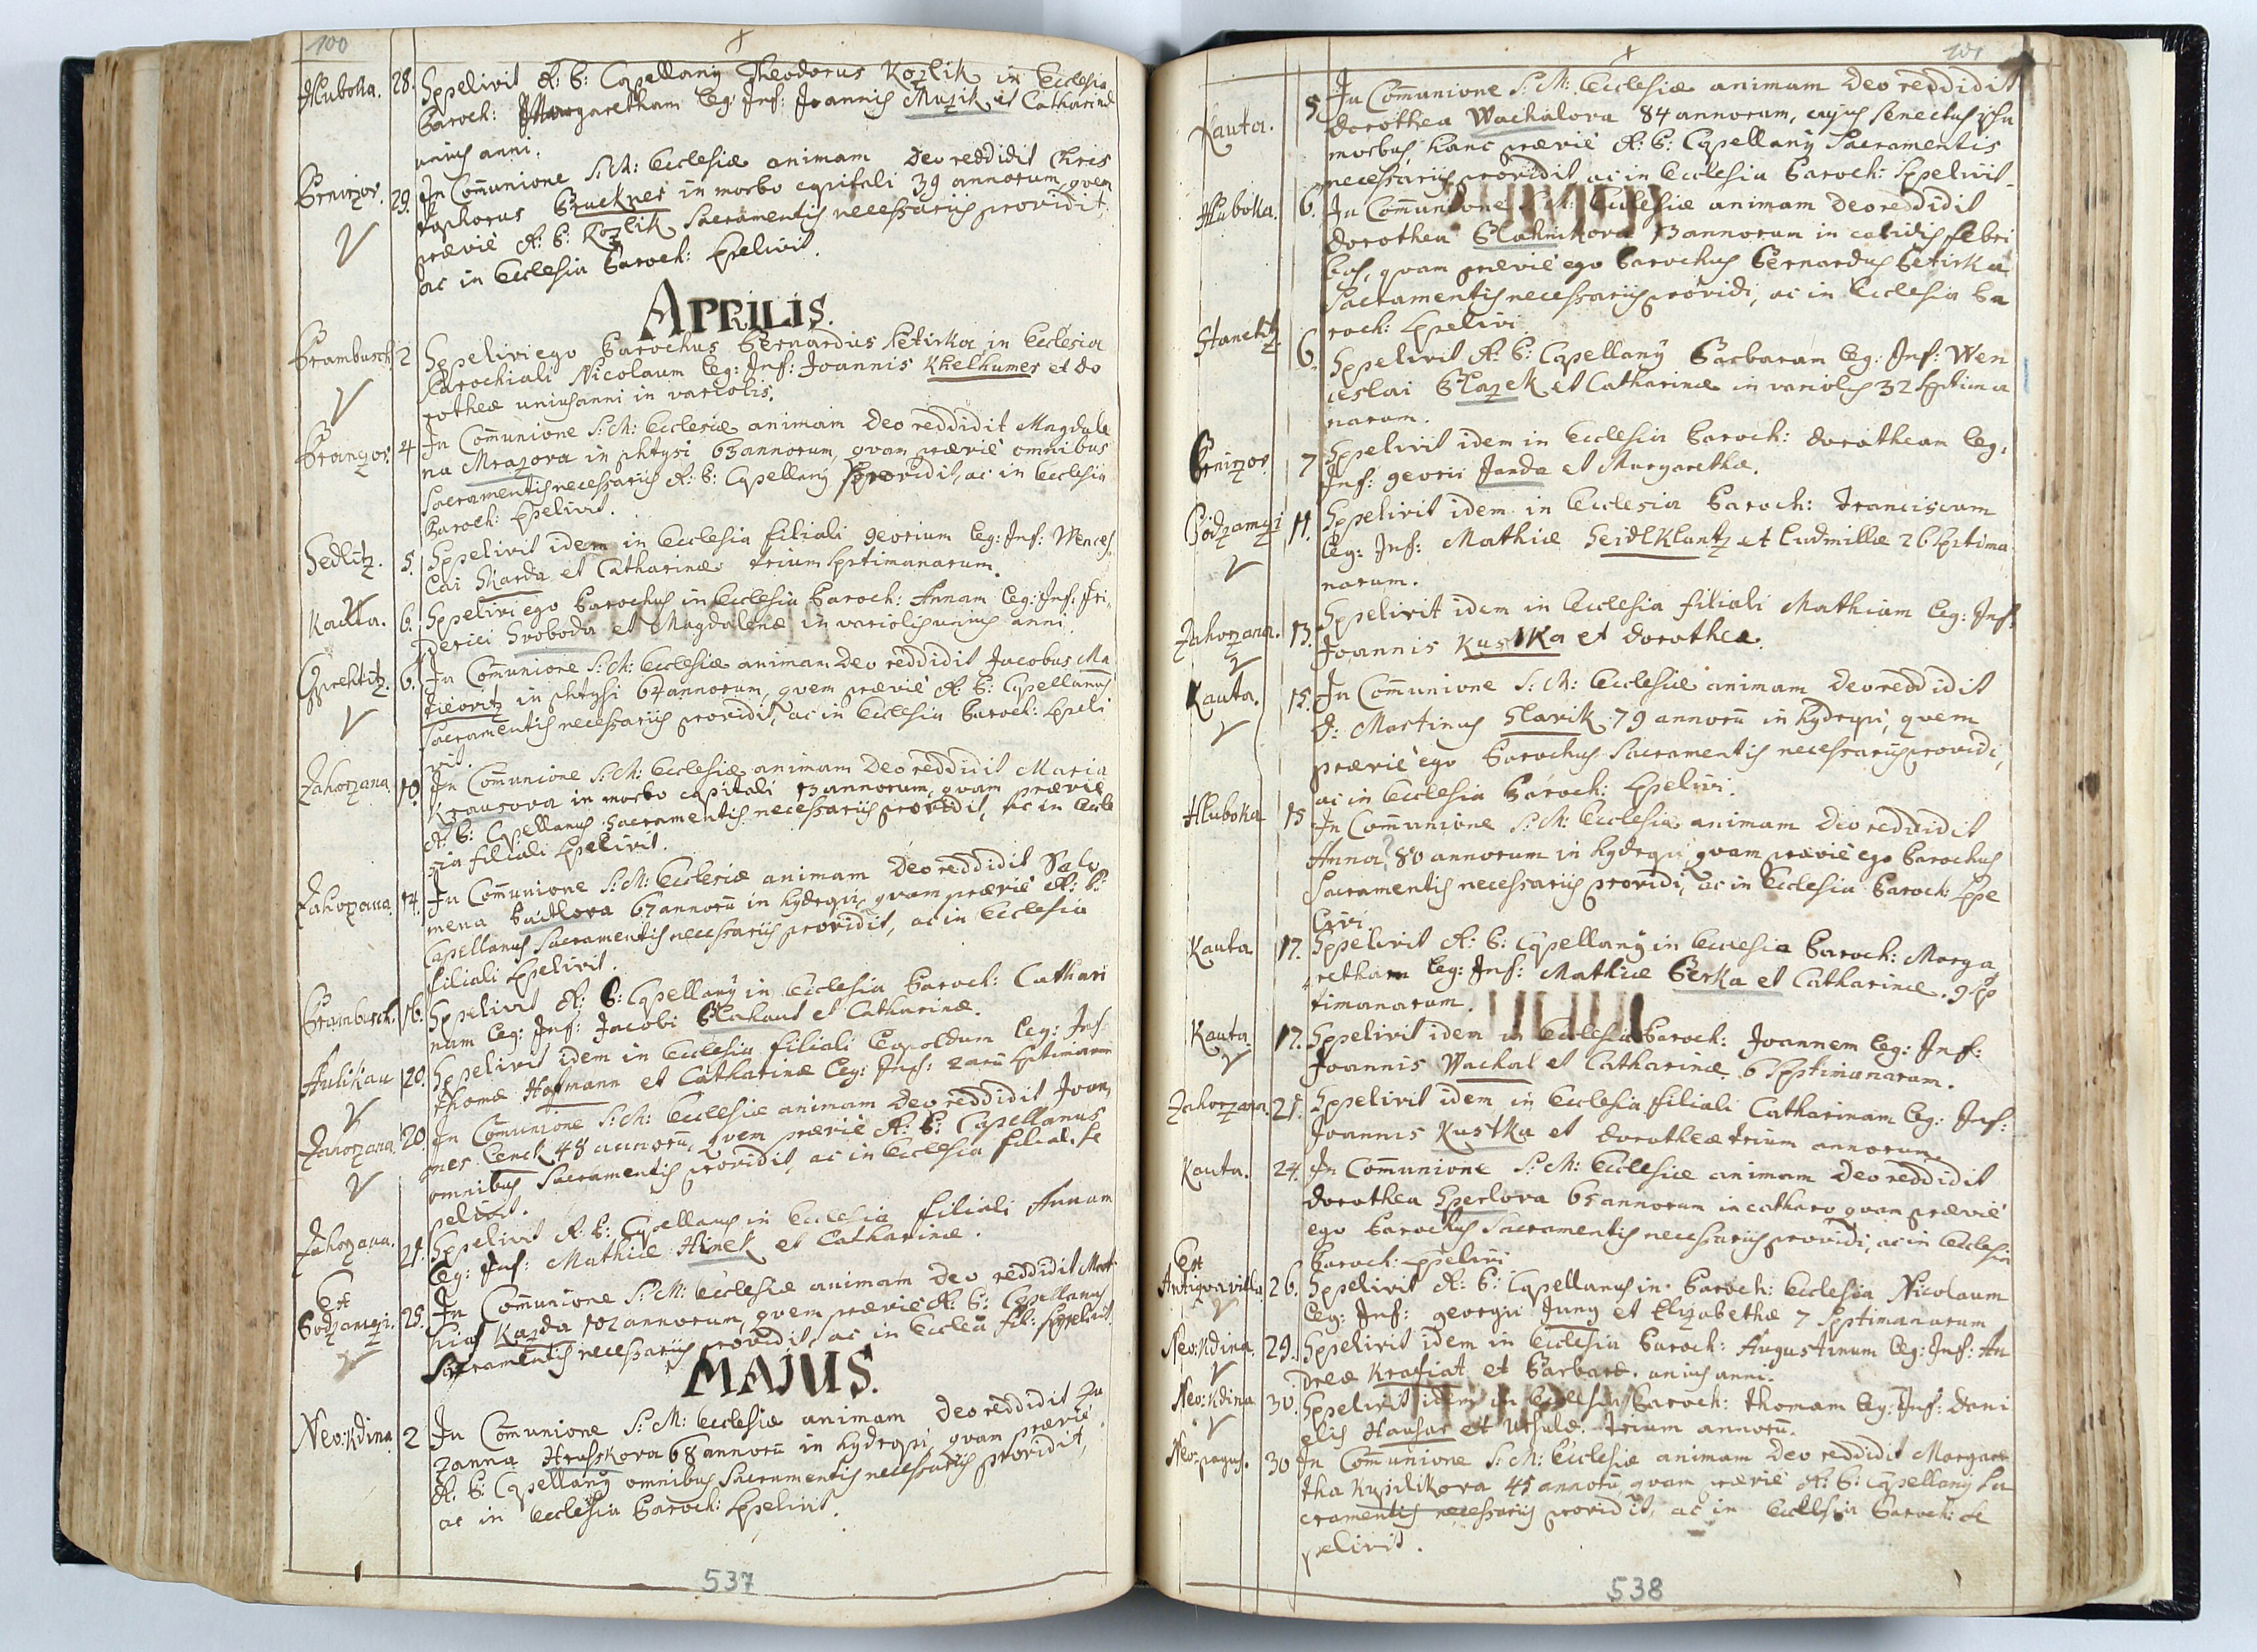 100
Hluboka. 28. Sepelivit A: P: Capellanꝰ Theodorus Kozlik in Ecclesia
Paroch: Margaretham leg: Inf: Joannis Muzik et Catharinæ
unius anni.
29. In Comunione S: M: Ecclesiæ animam Deo reddidit Chris
tophorus Pruckner in morbo capitali 39 annorum, quem
prævie A: P: Kozlik Sacramentis necessariis providit,
ac in Ecclesia Paroch: sepelivit.
APRILIS.
Prambusch 2 Sepelivi ego Parochus Bernardus Petirka in Ecclesia
Parochiali Nicolaum leg: Inf: Joannis Khelhumer et Do
rotheæ unius anni in variolis.
4 In Comunione S: M: Ecclesiæ animam Deo reddidit Magdale
na Mrazova in phtysi 63 annorum, quam prævie omnibus
Sacramentis necessariis A: P: Capellanꝰ providit, ac in Ecclesia
Paroch: sepelivit.
Sedlitz. 5. Sepelivit idem in Ecclesia filiali Georium leg: Inf: Wences
lai Skarda et Catharinæ trium septimanarum.
Kauta. 6. Sepelivi ego Parochus in Ecclesia Paroch: Annam leg: Inf: Fri,
derici Svoboda et Magdalenæ in variolis unius anni.
6. In Comunione S: M: Ecclesiæ animam Deo reddidit Jacobus Ma
tieovitz in phtysi 64 annorum, quem prævie A: P: Capellanus
Sacramentis necessariis providit, ac in Ecclesia Paroch: sepeli
vit.
Zahorzana 10. In Comunione S: M: Ecclesiæ animam Deo reddidit Maria
Krausova in morbo capitali 13 annorum, quam prævie
A: P: Capellanus Sacramentis necessariis providit, ac in Eccle
sia filiali sepelivit.
Zahorzana 14. In Comunione S: M: Ecclesiæ animam Deo reddidit Salo
mena 67 annorū in hydropi, quam prævie A: P:
Capellanus Sacramentis necessariis providit, ac in Ecclesia
filiali sepelivit.
Prambusch. 16. Sepelivit A: P: Capellanꝰ in Ecclesia Paroch: Cathari
nam leg: Inf: Jacobi Blahaut et Catharinæ.
Aulikau 20. Sepelivit idem in Ecclesia filiali Leopoldum leg: Inf:
Thomæ Hofmann et Catharinæ leg: Inf: 2arū septimanarum
Zahorzana. 20. In Comunione S: M: Ecclesiæ animam Deo reddidit Joan,
nes Cenek 48 annorū, quem prævie A: P: Capellanus
omnibus Sacramentis providit, ac in Ecclesia filiali se
pelivit.
Zahorzana. 21. Sepelivit A: P: Capellanus in Ecclesia filiali Annam
leg: Inf: Mathiæ Hinek et Catharinæ.
Est
Podzamczi. 25. In Comunione S: M: Ecclesiæ animam Deo reddidit Mat
hias Kazda 102 annorum, quem prævie A: P: Capellanus
Sacramentis necessariis providit, ac in Eccleā fil: sepelivit.
MAJUS.
Neo:Kdina 2 In Comunione S: M: Ecclesiæ animam Deo reddidit Zu
zanna Hrusskova 68 annorū in hydropi quam prævie
A: P: Capellanꝰ omnibus Sacramentis necessariis providit,
ac in Ecclesia Paroch: sepelivit.
537
101
Kauta. 5 In Comunione S: M: Ecclesiæ animam Deo reddidit
Dorothea Wachalova 84 annorum, cujus senectus ipsa
morbus, hanc prævie A: P: Capellanꝰ Sacramentis
necessariis providit, ac in Ecclesia Paroch: sepelivit.
Hluboka. 6. In Comunione S: M: Ecclesiæ animam Deo reddidit
Dorothea 13 annorum in calidis febri
bus, quam prævie ego Parochus Bernardus Petirka
Sacramentis necessariis providi, ac in Ecclesia Pa
roch: sepelivi.
Stanetitz. 6. Sepelivit A: P: Capellanꝰ Barbaram leg: Inf: Wen
ceslai Blazek et Catharinæ in variolis 32 septima
narum.
7 Sepelivit idem in Ecclesia Paroch: Dorotheam leg,
Inf: Georii Janda et Margarethæ.
Podzamczi 11. Sepelivit idem in Ecclesia Paroch: Franciscum
leg: Inf: Mathiæ Seidlklantz et Ludmillæ 26 septima
narum.
Zahorzana. 13. Sepelivit idem in Ecclesia filiali Mathiam leg: Inf:
Joannis Kustka et Dorotheæ.
Kauta. 15. In Comunione S: M: Ecclesiæ animam Deo reddidit
D: Martinus Slavik 79 annorū in hydropi, quem
prævie ego Parochus Sacramentis necessariis providi,
ac in Ecclesia Paroch: sepelivi.
Hluboka 15 In Comunione S: M: Ecclesiæ animam Deo reddidit
Anna? 80 annorum in hydropi quam prævie ego Parochus
Sacramentis necessariis providi, ac in Ecclesia Paroch: sepe
livi.
Kauta 17. Sepelivit A: P: Capellanꝰ in Ecclesia Paroch: Marga
retham leg: Inf: Mathiæ Perka et Catharinæ. 9 sep
timanarum.
Kauta. 17. Sepelivit idem in Ecclesia Paroch: Joannem leg: Inf:
Joannis Wachal et Catharinæ 6 septimanarum.
Zahorzana. 21. Sepelivit idem in Ecclesia filiali Catharinam leg: Inf:
Joannis Kustka et Dorotheæ trium annorum.
Kauta. 24. In Comunione S: M: Ecclesiæ animam Deo reddidit
Dorothea Sperlova 65 annorum in catharo quam prævie
ego Parochus Sacramentis necessariis providi, ac in Ecclesia
Paroch: sepelivi
Est
Antiqua villa. 26. Sepelivit A: P: Capellanus in Paroch: Ecclesia Nicolaum
leg: Inf: Georgii Jung et Elizabethæ 7 septimanarum
Neo:Kdina. 29. Sepelivit idem in Ecclesia Paroch: Augustinum leg: Inf: An
dreæ Krafiat et Barbaræ. unius anni.
Neo:Kdina 30. Sepelivit idem in Ecclesia Paroch: Thomam leg: Inf: Dani
elis Hausar et Ursulæ trium annorū.
Neo:pagus. 30 In Comunione S: M: Ecclesiæ animam Deo reddidit Margare
tha Kupilikova 45 annorū quam prævie A: P: Capellanꝰ Sa
cramentis necessariis providit, ac in Ecclesia Paroch: se
pelivit.
538